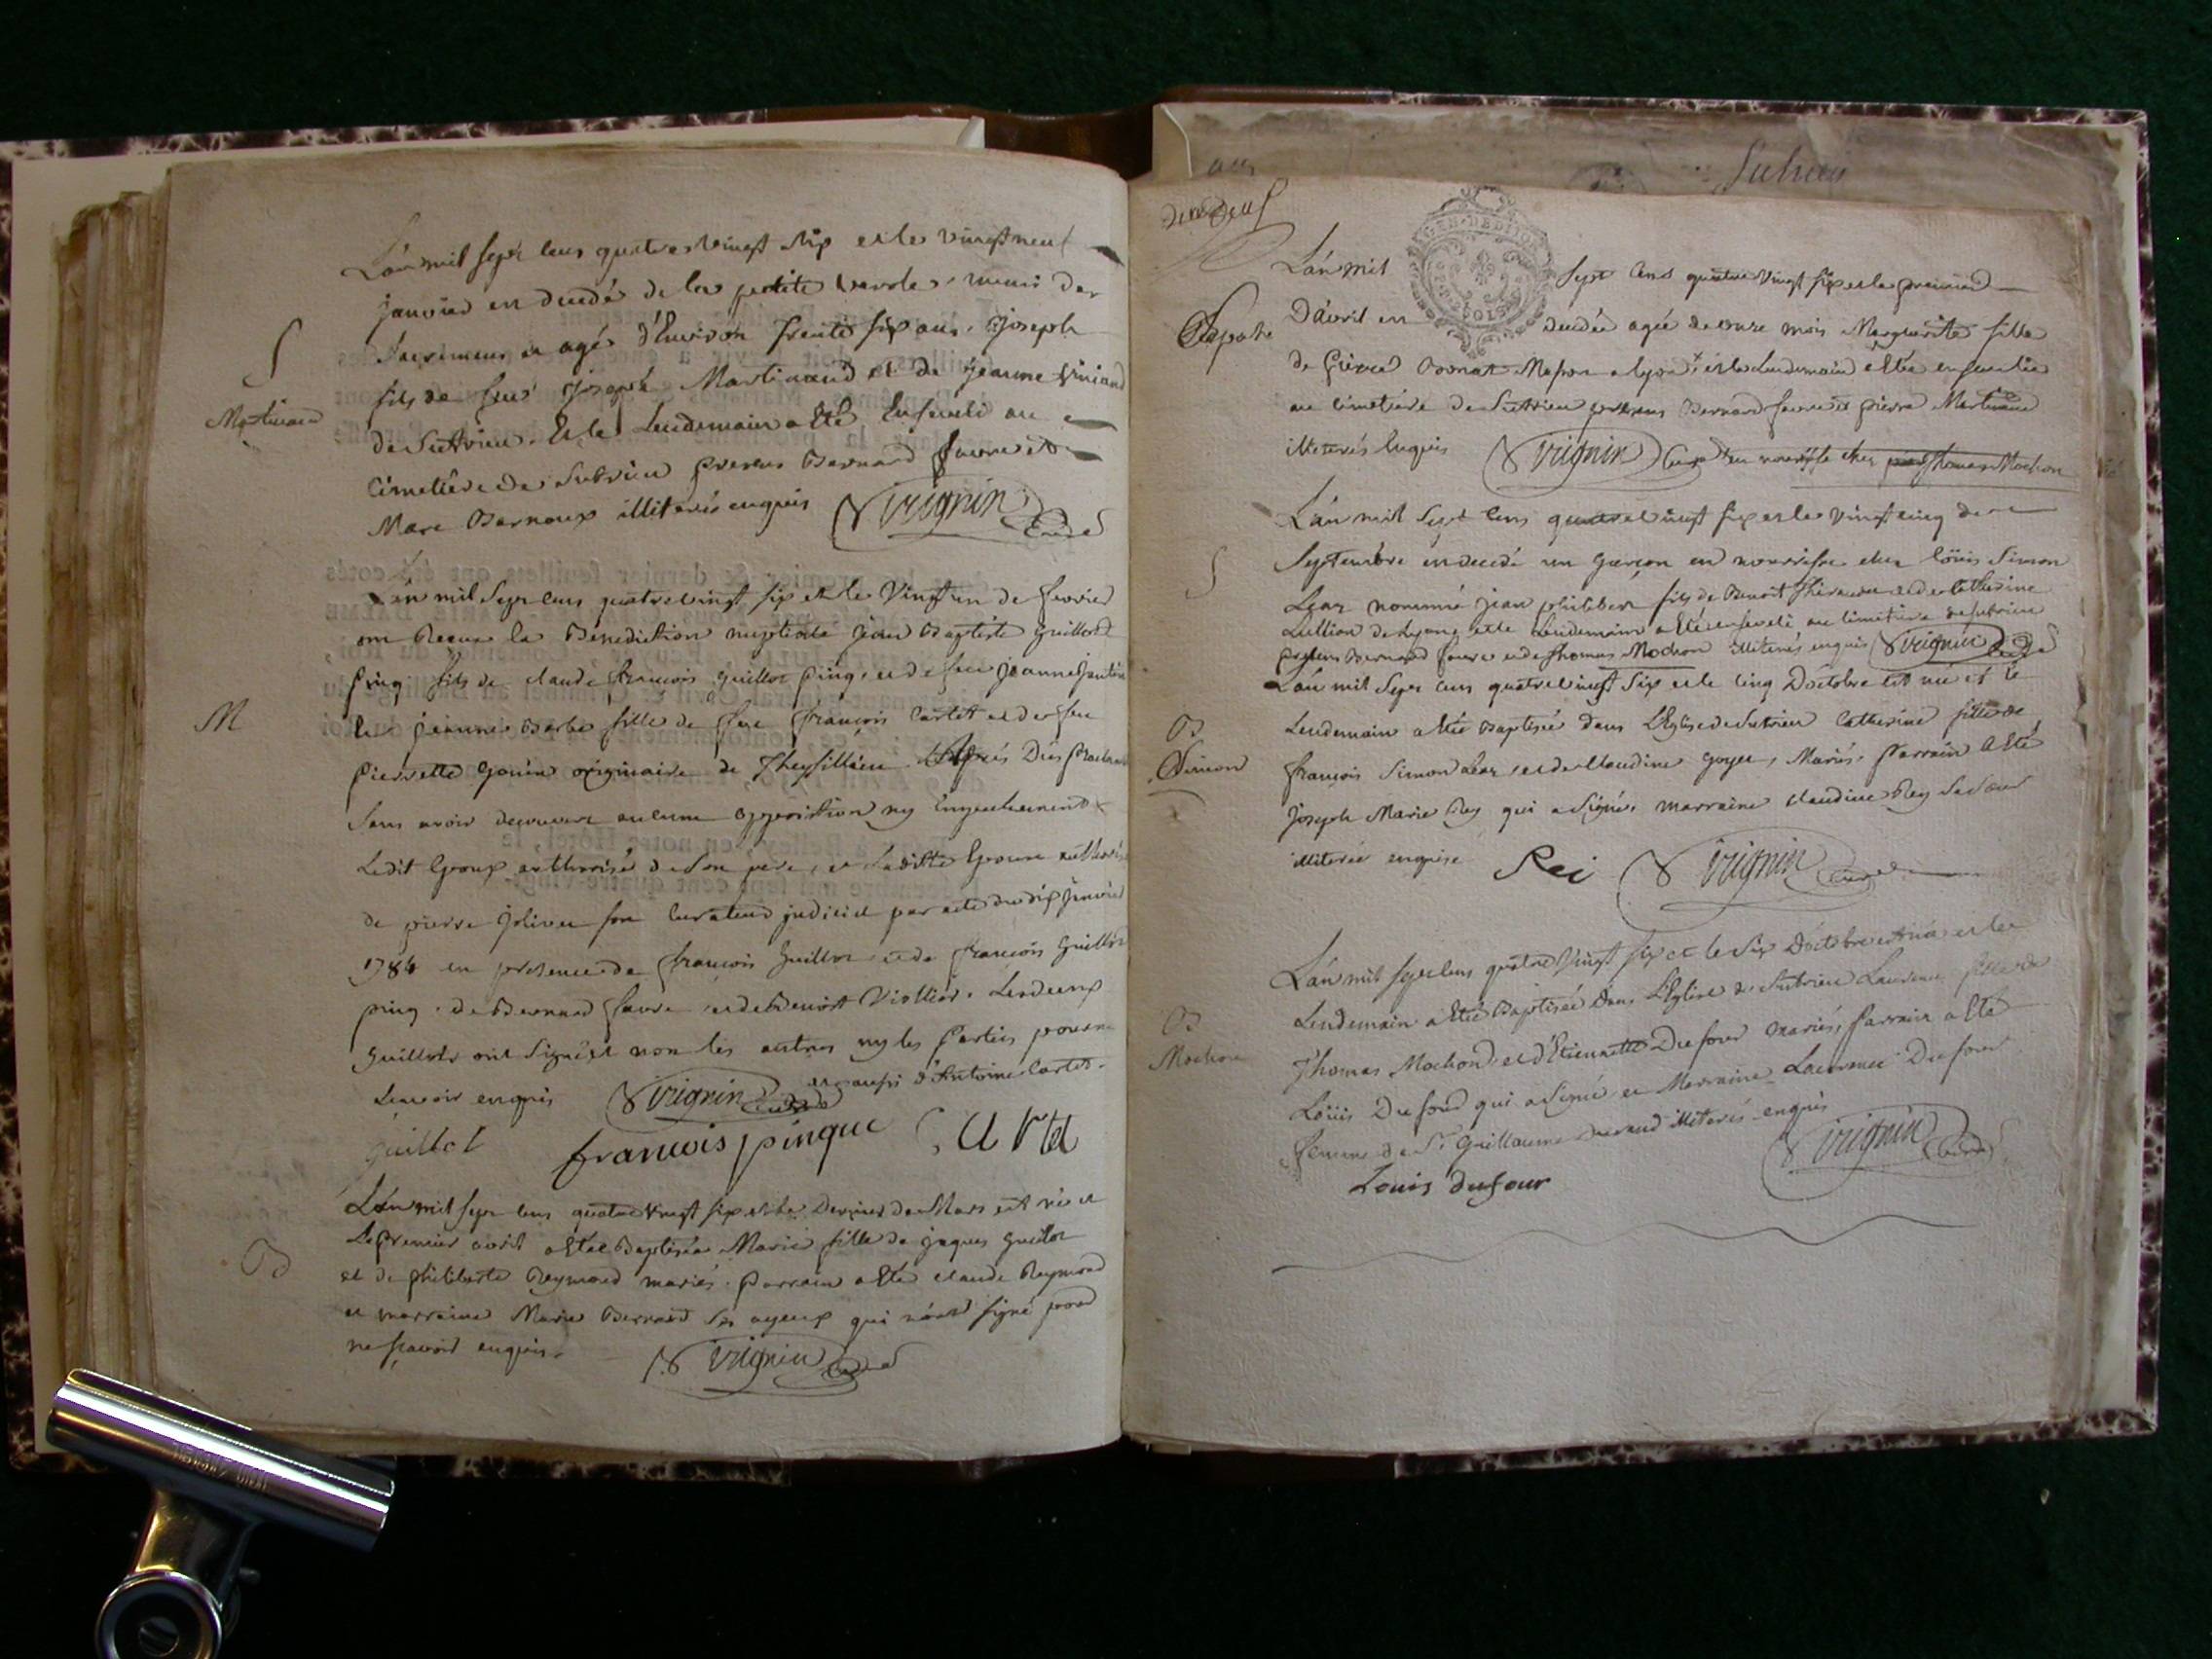 L'an mil sept cens quatre vingt six et le vingt neuf
janvier est decedé de la petite verole, muni des
Sacremens et agé d'Environ trente six ans. Joseph
fils de feu Joseph Martinand et de jeanne
de Sutrieu. Et le Lendemain a Eté Enseveli au
Cimetière de Sutrieu presens Bernard favre et
Marc Bernoux illiterés enquis Virignin Curé
S
Martinand
L'an mil Sept cens quatre vingt six et le Vingt un de fevrier
ont Recue la Benediction nuptiale jean Baptiste guillot
ping fils de claude françois guillot ping, et de feu jeanne
et jeanne Barbe fille de feu françois Cartet et de feu
pierrette Gonin originaire de Thezillieu
Sans avoir decouvert aucune opposition ny Empechement
Ledit Epoux authorisé de Son pere, et Laditte Epouse authorisée
de pierre jolivet son Curateur judiciel par acte du dix janvier
1784 en presence de françois Guillot et de françois Guillot
ping, de Bernard favre et de Benoit Viollier. Les deux
guillots ont Signé et non les autres ny les Parties pour ne
Scavoir enquis Virignin Curé et aussi d'Antoine Cartet.
M
guillot françois pinque Cartet
L'an mil sept cens quatre vingt six et le Dernier de Mars est née et
Le premier avril a Eté Baptisée Marie fille de jaques guillot
et de philiberte Reymond mariés. Parrain a Eté claude Reymond
et marraine Marie Bernard Ses ayeux qui n'ont signé pour
ne scavoir enquis. Virignin Curé
B
Sutrieu
deux
GEN. DE DIJON
SOLS
L'an mil Sept Cens quatre Vingt six et le premier
D'avril est decedée agée de onze mois Marguerite fille
de pierre Bonnat Masson a lyon + et le Lendemain a Etée ensevelie
au cimetière de Sutrieu presens Bernard favre et pierre Martinand
illiterés Enquis Virignin Curé + en nourisse chez Thomas Mochon
L'an mil Sept Cens quatre vingt six et le vingt cinq de
Septembre est decedé un garçon en nourrisse chez loüis Simon
Lear nommé jean philibert fils de Benoit et de Catherine
Lullion de Lyon, et le Lendemain a Eté enseveli au cimetière de Sutrieu
presens Bernard favre et de Thomas Mochon illiterés enquis Virignin Curé
S
L'an mil Sept cens quatre vingt Six et le cinq D'octobre est née et le
Lendemain a Eté Baptisée dans L'Eglise de Sutrieu Catherine fille de
françois Simon Lear et de Claudine Goyet, Mariés. Parrain a Eté
Joseph Marie Rey qui a Signé, marraine claudine Rey Sa Sœur
illiterée enquise Rei Virignin Curé
B
Simon
L'an mil sept cens quatre Vingt six et le Six D'octobre est née et le
Lendemain a Eté Baptisée dans L'Eglise de Sutrieu Laurence fille de
Thomas Mochon et d'Etiennette Dufour mariés, Parrain a Eté
Loüis Dufour qui a Signé et Marraine Laurence Dufour
femme de Sr. Guillaume Durand illiterés enquis
B
Mochon
Louis dufour Virignin Curé